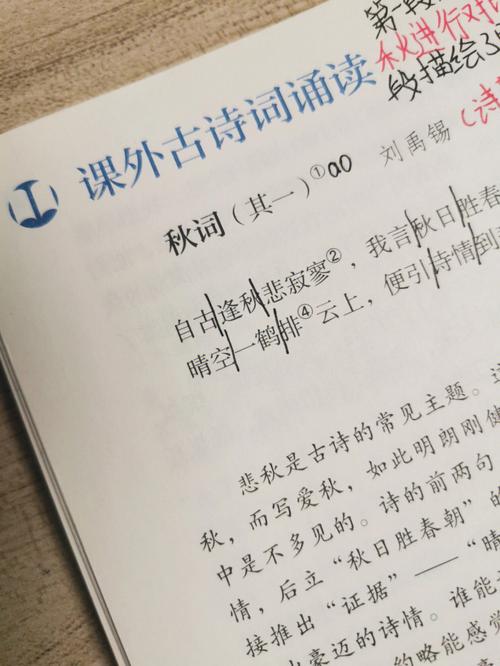 第一段
秋进行对
段描绘了
课外古诗词诵读
(诗
秋词（其一）① ao 刘禹锡
自古逢秋悲寂寥②，我言秋日胜春
晴空一鹤排④云上，便引诗情到
悲秋是古诗的常见主题。
秋，而写爱秋，如此明朗刚健
中是不多见的。诗的前两句
情，后立“秋日胜春朝”的
接推出“证据”——“晴
豪迈的诗情。谁能
的略能感